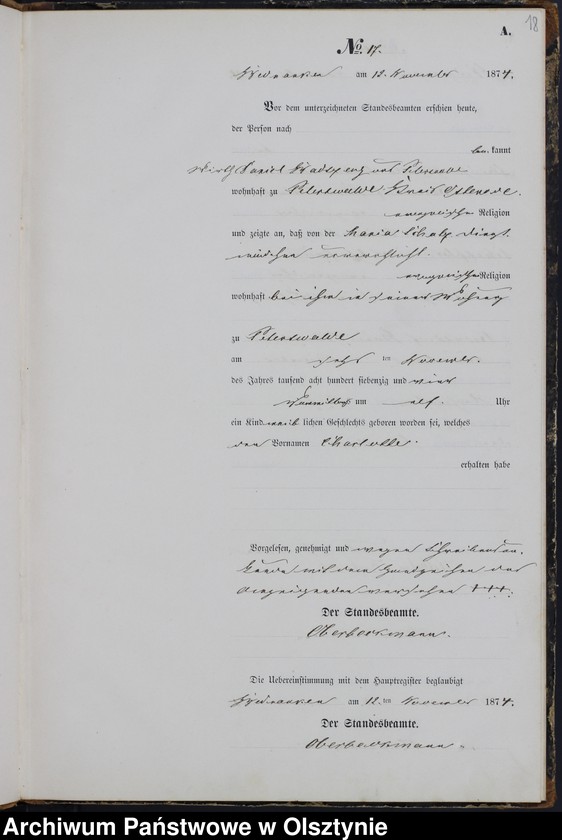 18
A.
No. 17.
am 12. November 1874.
Vor dem unterzeichneten Standesbeamten erschien heute,
der Person nach
be kannt
Wirth Daniel aus Peterswalde
wohnhaft zu Peterswalde Kreis Osterode.
evangelischer Religion
und zeigte an, daß von der Maria Dienst-
mädchen
evangelischer Religion
wohnhaft bei ihm in seiner Wohnung
zu Peterswalde
am sechs ten November
des Jahres tausend acht hundert siebenzig und vier
Vormittags um elf Uhr
ein Kind weib lichen Geschlechts geboren worden sei, welches
den Vornamen Charlotte.
erhalten habe
Vorgelesen, genehmigt und wegen Schreibensun-
kunde mit dem Handzeichen des
Anzeigenden versehen +++.
Der Standesbeamte.
Oberbeckmann.
Die Uebereinstimmung mit dem Hauptregister beglaubigt
am 12. ten November 1874.
Der Standesbeamte.
Oberbeckmann.
Archiwum Państwowe w Olsztynie